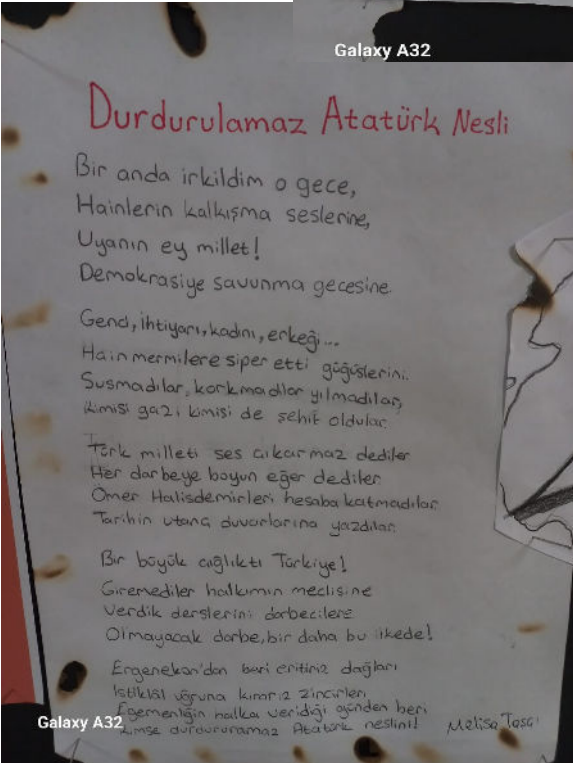 Galaxy A32
Durdurulamaz Atatürk Nesli
Bir anda irkildim o gece,
Hainlerin kalkışma seslerine,
Uyanın ey millet!
Demokrasiye savunma gecesine.
Genci, ihtiyarı, kadını, erkeği...
Hain mermilere siper etti göğüslerini.
Susmadılar, korkmadılar yılmadılar,
Kimisi gazi kimisi de şehit oldular.
Türk milleti ses çıkarmaz dediler
Her darbeye boyun eğer dediler.
Ömer Halisdemirleri hesaba katmadılar.
Tarihin utanç duvarlarına yazdılar.
Bir büyük çığlıktı Türkiye!
Giremediler halkımın meclisine
Verdik derslerini darbecilere
Olmayacak darbe, bir daha bu ülkede!
Ergenekon'dan beri eritiriz dağları
İstiklâl uğruna kırarız zincirleri
Egemenliğin halka veridiği günden beri
Kimse durdururamaz Atatürk neslini!
Melisa Taşçı
Galaxy A32